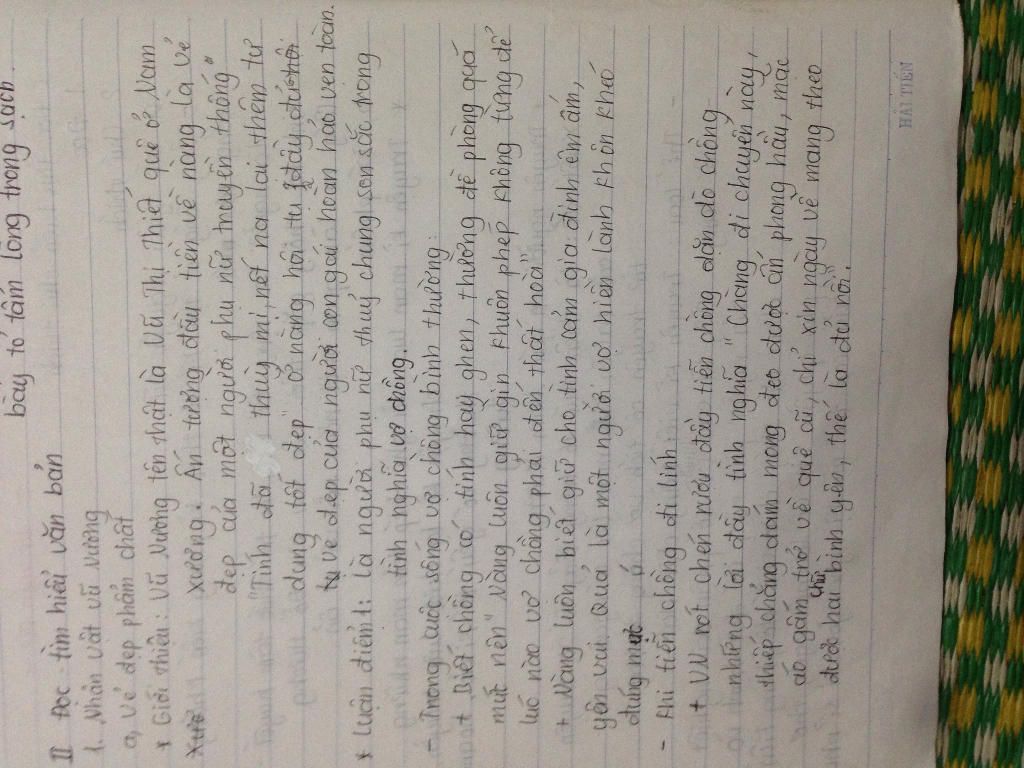 bày tỏ tấm lòng trong sạch.
II Đọc - tìm hiểu văn bản
1. Nhân vật Vũ Nương
a, Vẻ đẹp phẩm chất
* Giới thiệu: Vũ Nương tên thật là Vũ Thị Thiết quê ở Nam
Xương. Ấn tượng đầu tiên về nàng là vẻ
đẹp của một người phụ nữ truyền thống"
"Tính đã thuỳ mị, nết na lại thêm tư
dung tốt đẹp" ở nàng hội tụ đầy đủ
vẻ đẹp của người con gái hoàn hảo vẹn toàn.
* Luận điểm 1: là người phụ nữ thuỷ chung son sắc trong
tình nghĩa vợ chồng.
- Trong cuộc sống vợ chồng bình thường:
+ Biết chồng có tính hay ghen, thường đề phòng quá
mức nên "Nàng luôn giữ gìn khuôn phép không từng để
lúc nào vợ chồng phải đến thất hoà"
+ Nàng luôn biết giữ cho tình cảm gia đình êm ấm,
yên vui. Quả là một người vợ hiền lành khôn khéo
đúng mực
- Khi tiễn chồng đi lính
+ VN rót chén rượu đầy tiễn chồng dặn dò chồng
những lời đầy tình nghĩa "Chàng đi chuyến này,
thiếp chẳng dám mong đeo được ấn phong hầu, mặc
áo gấm trở về quê cũ, chỉ xin ngày về mang theo
được hai chữ bình yên, thế là đủ rồi".
HẢI TIẾN